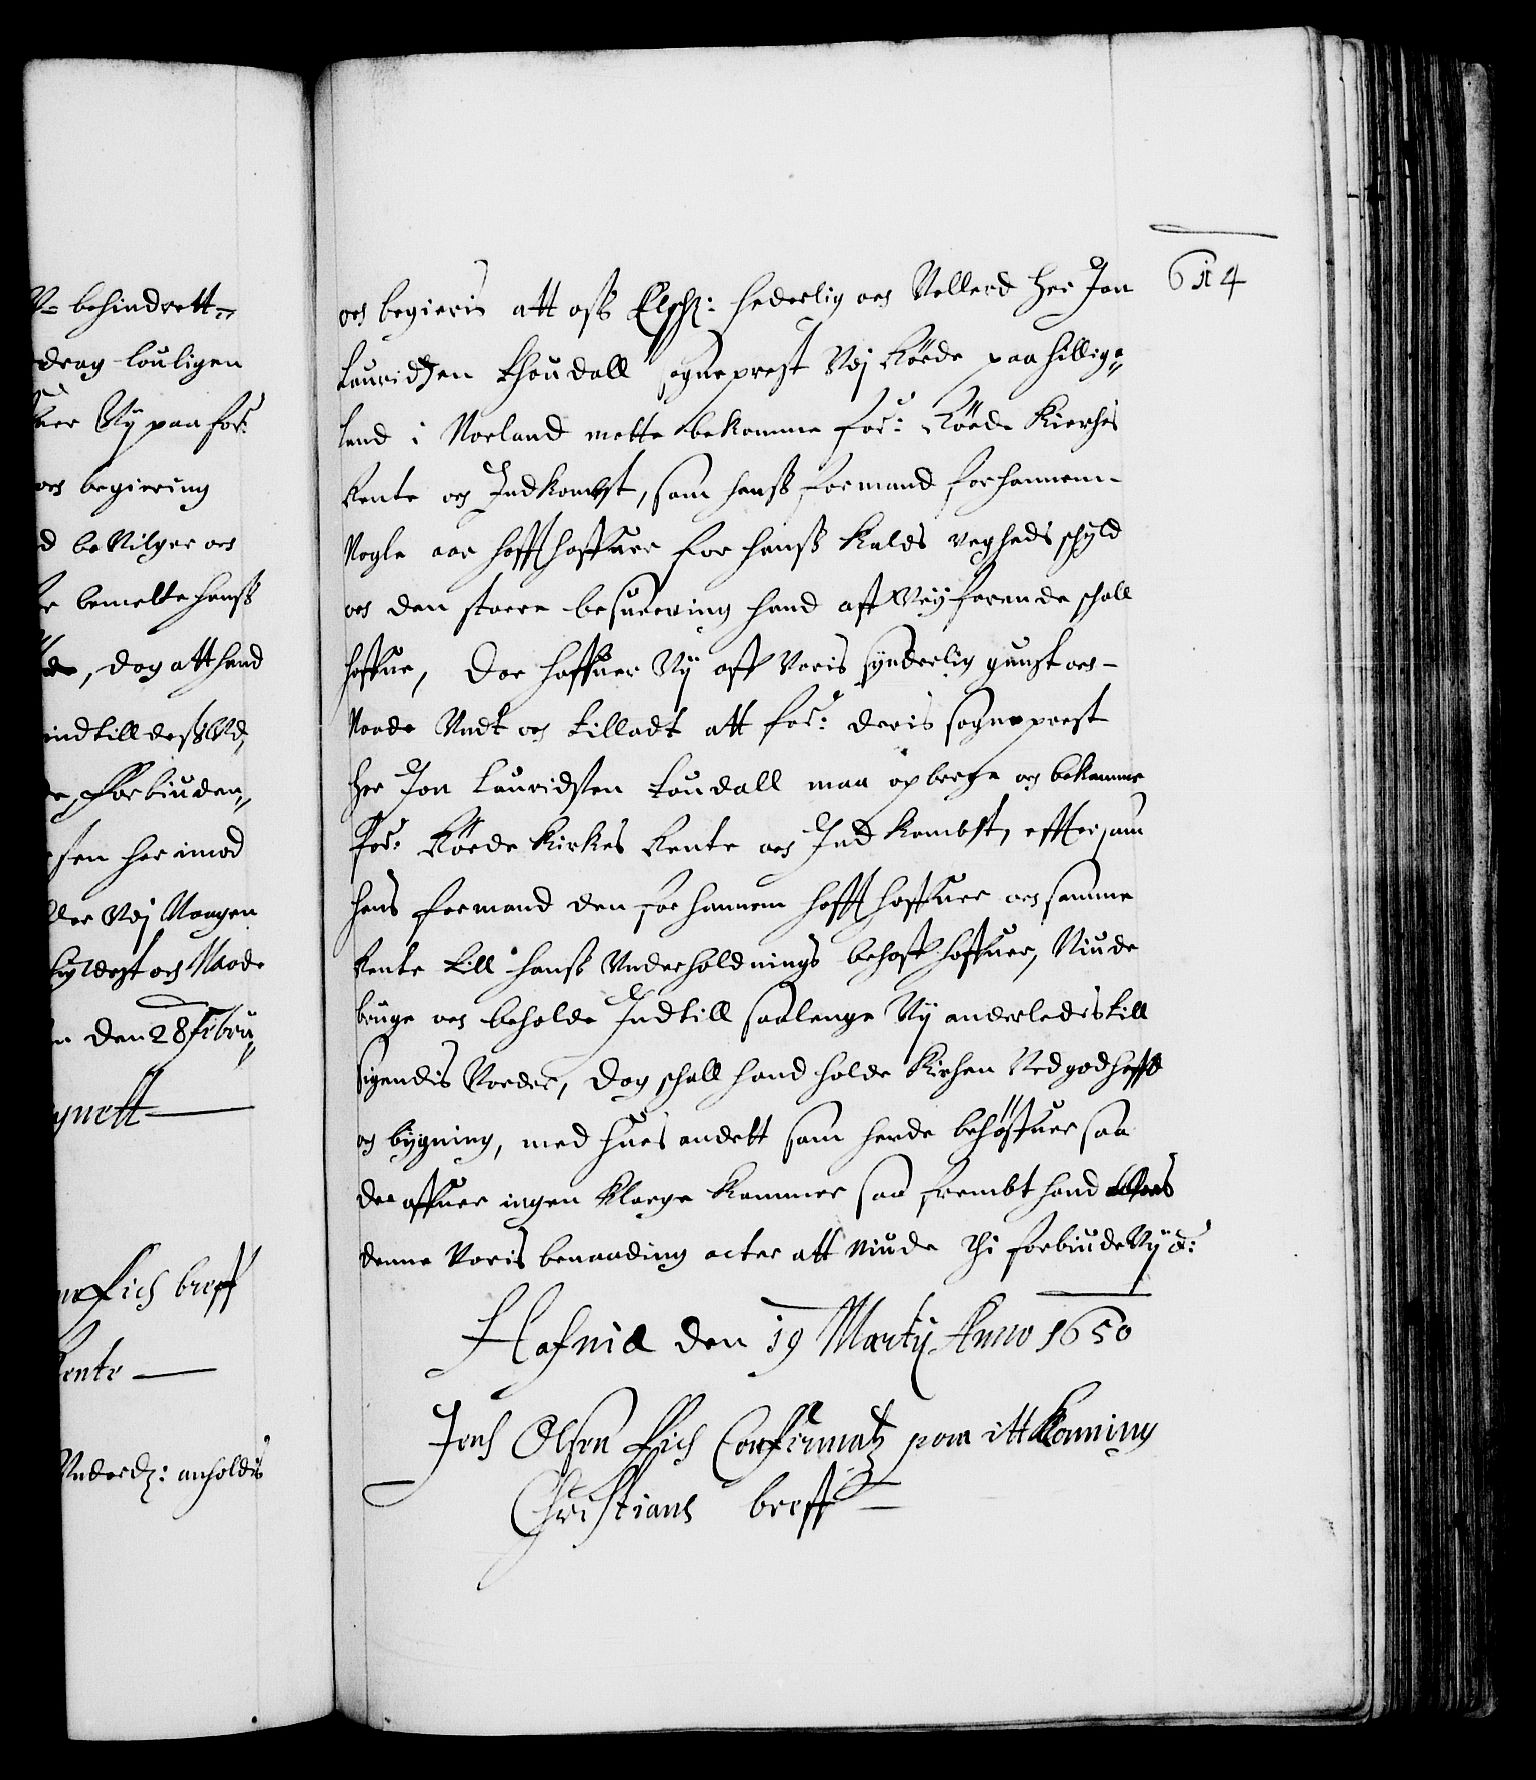 V= behindrett=
drag louligen
Vy paa for:
och begiering
d beVilger och
bemelte hanß
de, dog att hand
indtill deß Vd,
forbiuden,,
sen her imod
Vdj Naagen
och Naade
den 28 Febru,,
ynett
Fich breff
Rente
Vnderdz: anholdis
614
och begieris att oß Elschz: Hederlig och Vellerd Her Jon
Lauridsen Thoudall sogneprest Vdj Röde paa Hillig=
land i Norland motte bekomme for: Röede Kierchis
Rente och Indkombst, som hanß formand for hannem
Nogle aar hafft haffuer for hanß Kalds ringheds schyld
och den stoere besuerring hand aff Veyfarende schall
haffue, Da haffuer Vy aff Voris synderlig gunst och
Naade Vndt och tilladt att for: deris sogneprest
Her Jon Lauridsen Toudall maa opberge och bekomme
for: Röede Kirkes Rente och Indkombst, efftersom
hans formand den for hannem hafft haffuer och samme
Rente till hanß Vnderholdnings behoff haffuer, Niude
bruge och beholde Indtill saalenge Vy anderledis till
sigendis Vorder, Dog schall hand holde Kirken Ved god heffd
og bygning, med hues andett som herde behöffuer saa
der offuer ingen Klage kommer saa frembt hand ellers
denne Voris benaading acter att niude Thi forbiude Vy &:
Hafniæ den 19 Martij Anno 1650
Jens Olsen Fich Confirmatz paa itt Konning
Christians breff